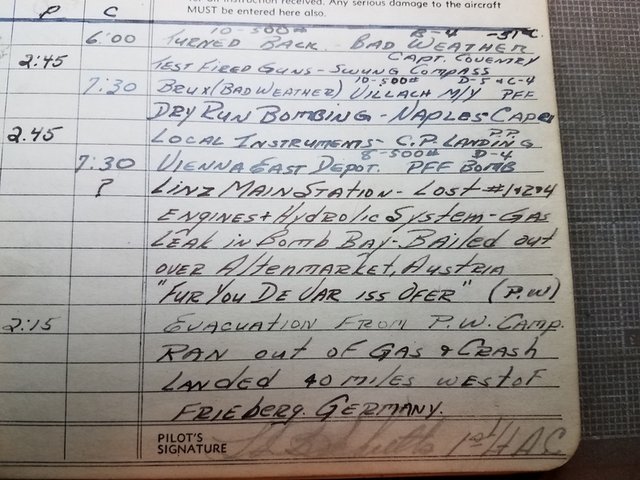 for all instruction received. Any serious damage to the aircraft
MUST be entered here also.
P C
10-500# B-4 -31°C.
6:00 TURNED BACK. BAD WEATHER
CAPT. COVENTRY
2:45 TEST FIRED GUNS - SWUNG COMPASS
10-500# D-5 & C-4
7:30 BRUX (BAD WEATHER) VILLACH M/Y PFF
DRY RUN BOMBING - NAPLES-CAPRI
P.P.
2.45 LOCAL INSTRUMENTS - C.P. LANDING
8-500# D-4
7:30 VIENNA EAST DEPOT. PFF BOMB
? LINZ MAIN STATION - LOST #1&2&4
ENGINES + HYDROLIC SYSTEM - GAS
LEAK IN BOMB BAY - BAILED OUT
OVER ALTENMARKET, AUSTRIA
"FUR YOU DE VAR ISS OFER" (P.W)
2:15 EVACUATION FROM P.W. CAMP.
RAN OUT OF GAS & CRASH
LANDED 40 MILES WEST OF
FRIEBERG. GERMANY.
PILOT'S
SIGNATURE 1st Lt A.C.